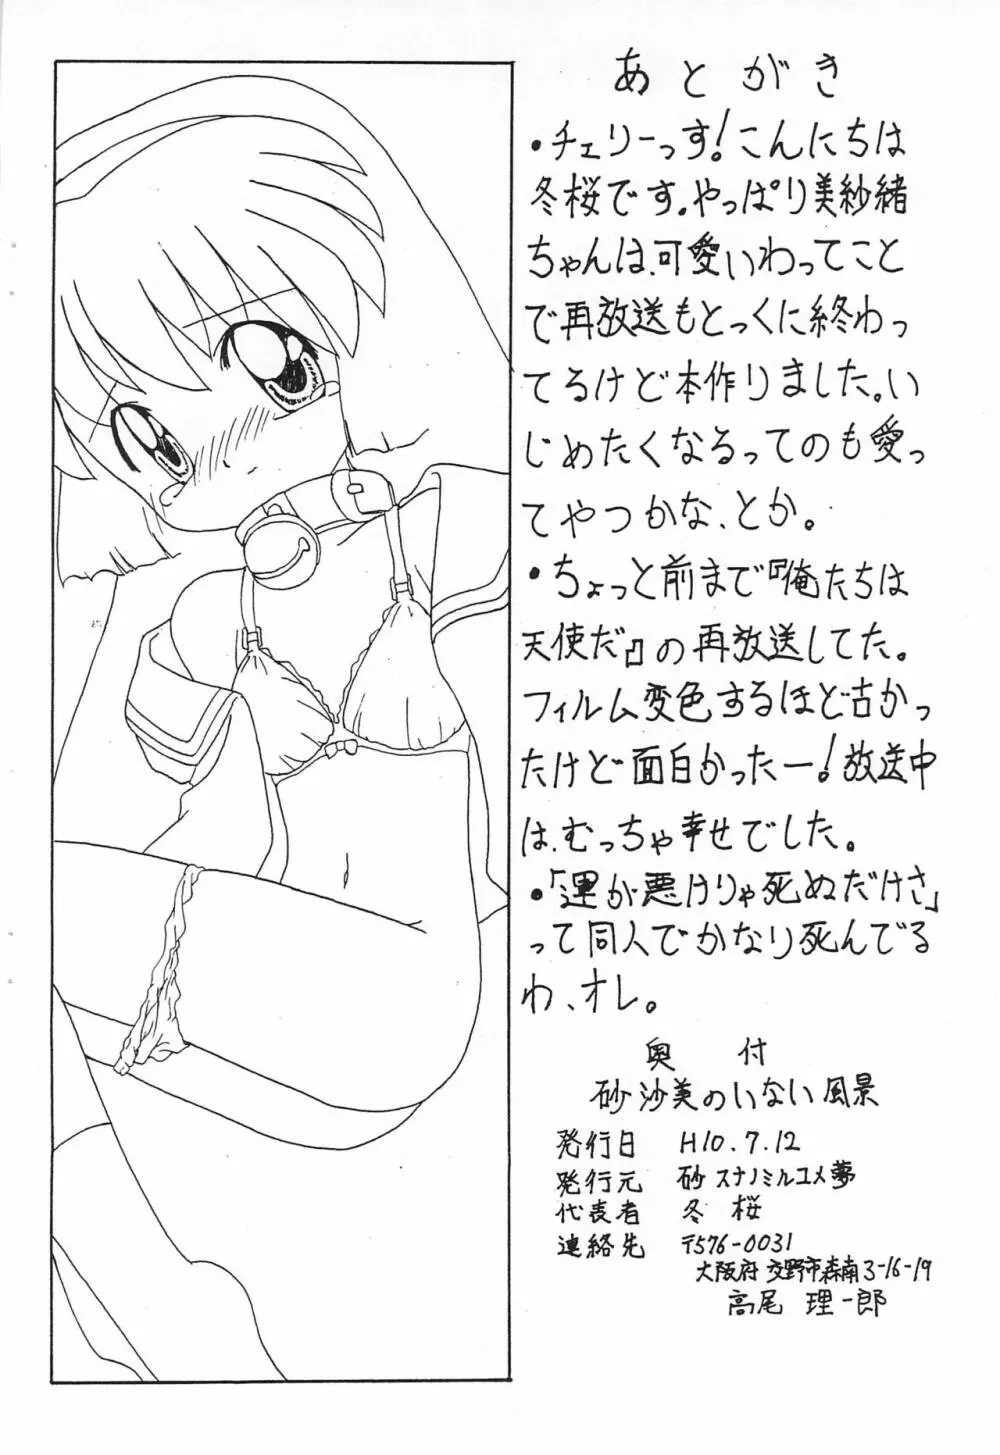 あとがき
・チェリーっす！こんにちは
冬桜です。やっぱり美紗緒
ちゃんは、可愛いわってこと
で再放送もとっくに終わっ
てるけど本作りました。い
じめたくなるってのも愛っ
てやつかな、とか。
・ちょっと前まで『俺たちは
天使だ』の再放送してた。
フィルム変色するほど古かっ
たけど面白かったー！放送中
は、むっちゃ幸せでした。
・「運が悪けりゃ死ぬだけさ」
って同人でかなり死んでる
わ、オレ。
奥付
砂沙美のいない風景
発行日 H10.7.12
発行元 砂 スナノミルユメ夢
代表者 冬桜
連絡先 〒576-0031
大阪府交野市森南3-16-19
高尾 理一郎